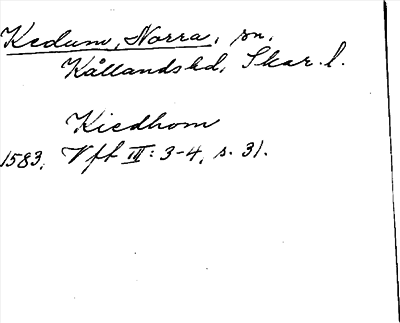 Kedum, Norra, sn,
Kållandshd, Skar. l.
Kiedhom
1583, Vft III: 3-4, s. 31.